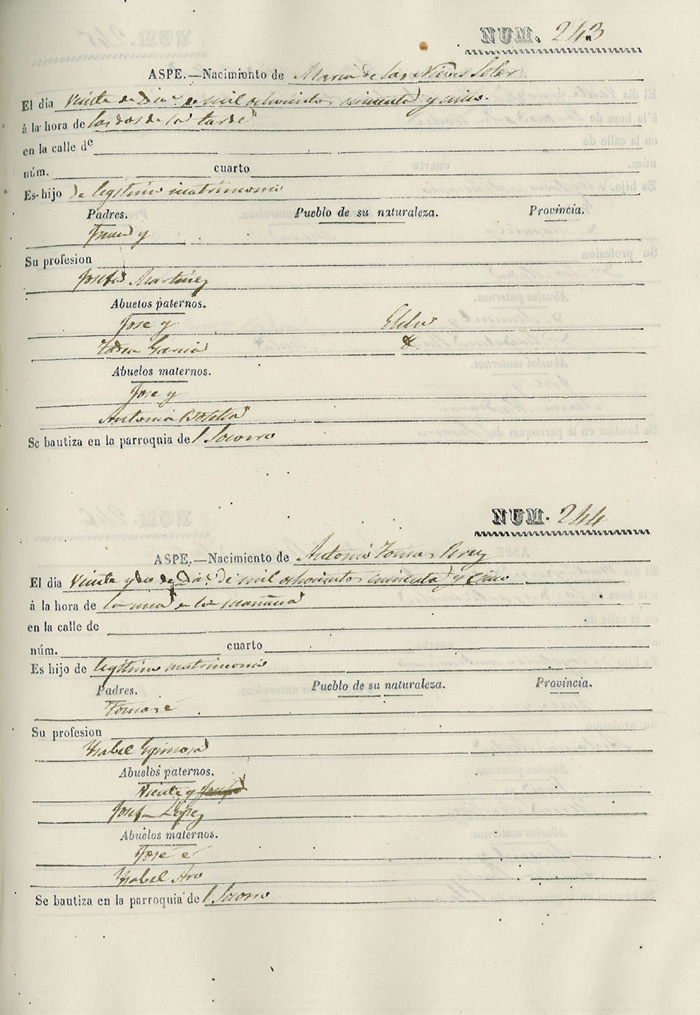 NUM. 243
ASPE.—Nacimiento de Maria de las Nieves Soler
El día veinte de Dice de mil ochocientos cincuenta y cinco.
á la hora de las dos de la tarde
en la calle de
núm. cuarto
Es hijo de legitimo matrimonio
Padres. Pueblo de su naturaleza. Provincia.
y
Su profesion
Josefa Martinez
Abuelos paternos.
Jose y Elche
Garcia
Abuelos maternos.
Jose y
Antonia Botella
Se bautiza en la parroquia del Socorro
NUM. 244
ASPE.—Nacimiento de Antonio Tomas
El día veinte y dos de Dice de mil ochocientos cincuenta y cinco
á la hora de la una de la mañana
en la calle de
núm. cuarto
Es hijo de legitimo matrimonio
Padres. Pueblo de su naturaleza. Provincia.
Tomas é
Su profesion
Ysabel Espinosa
Abuelos paternos.
Vicente y
Josefa Lopez
Abuelos maternos.
Jose é
Ysabel
Se bautiza en la parroquia del Socorro